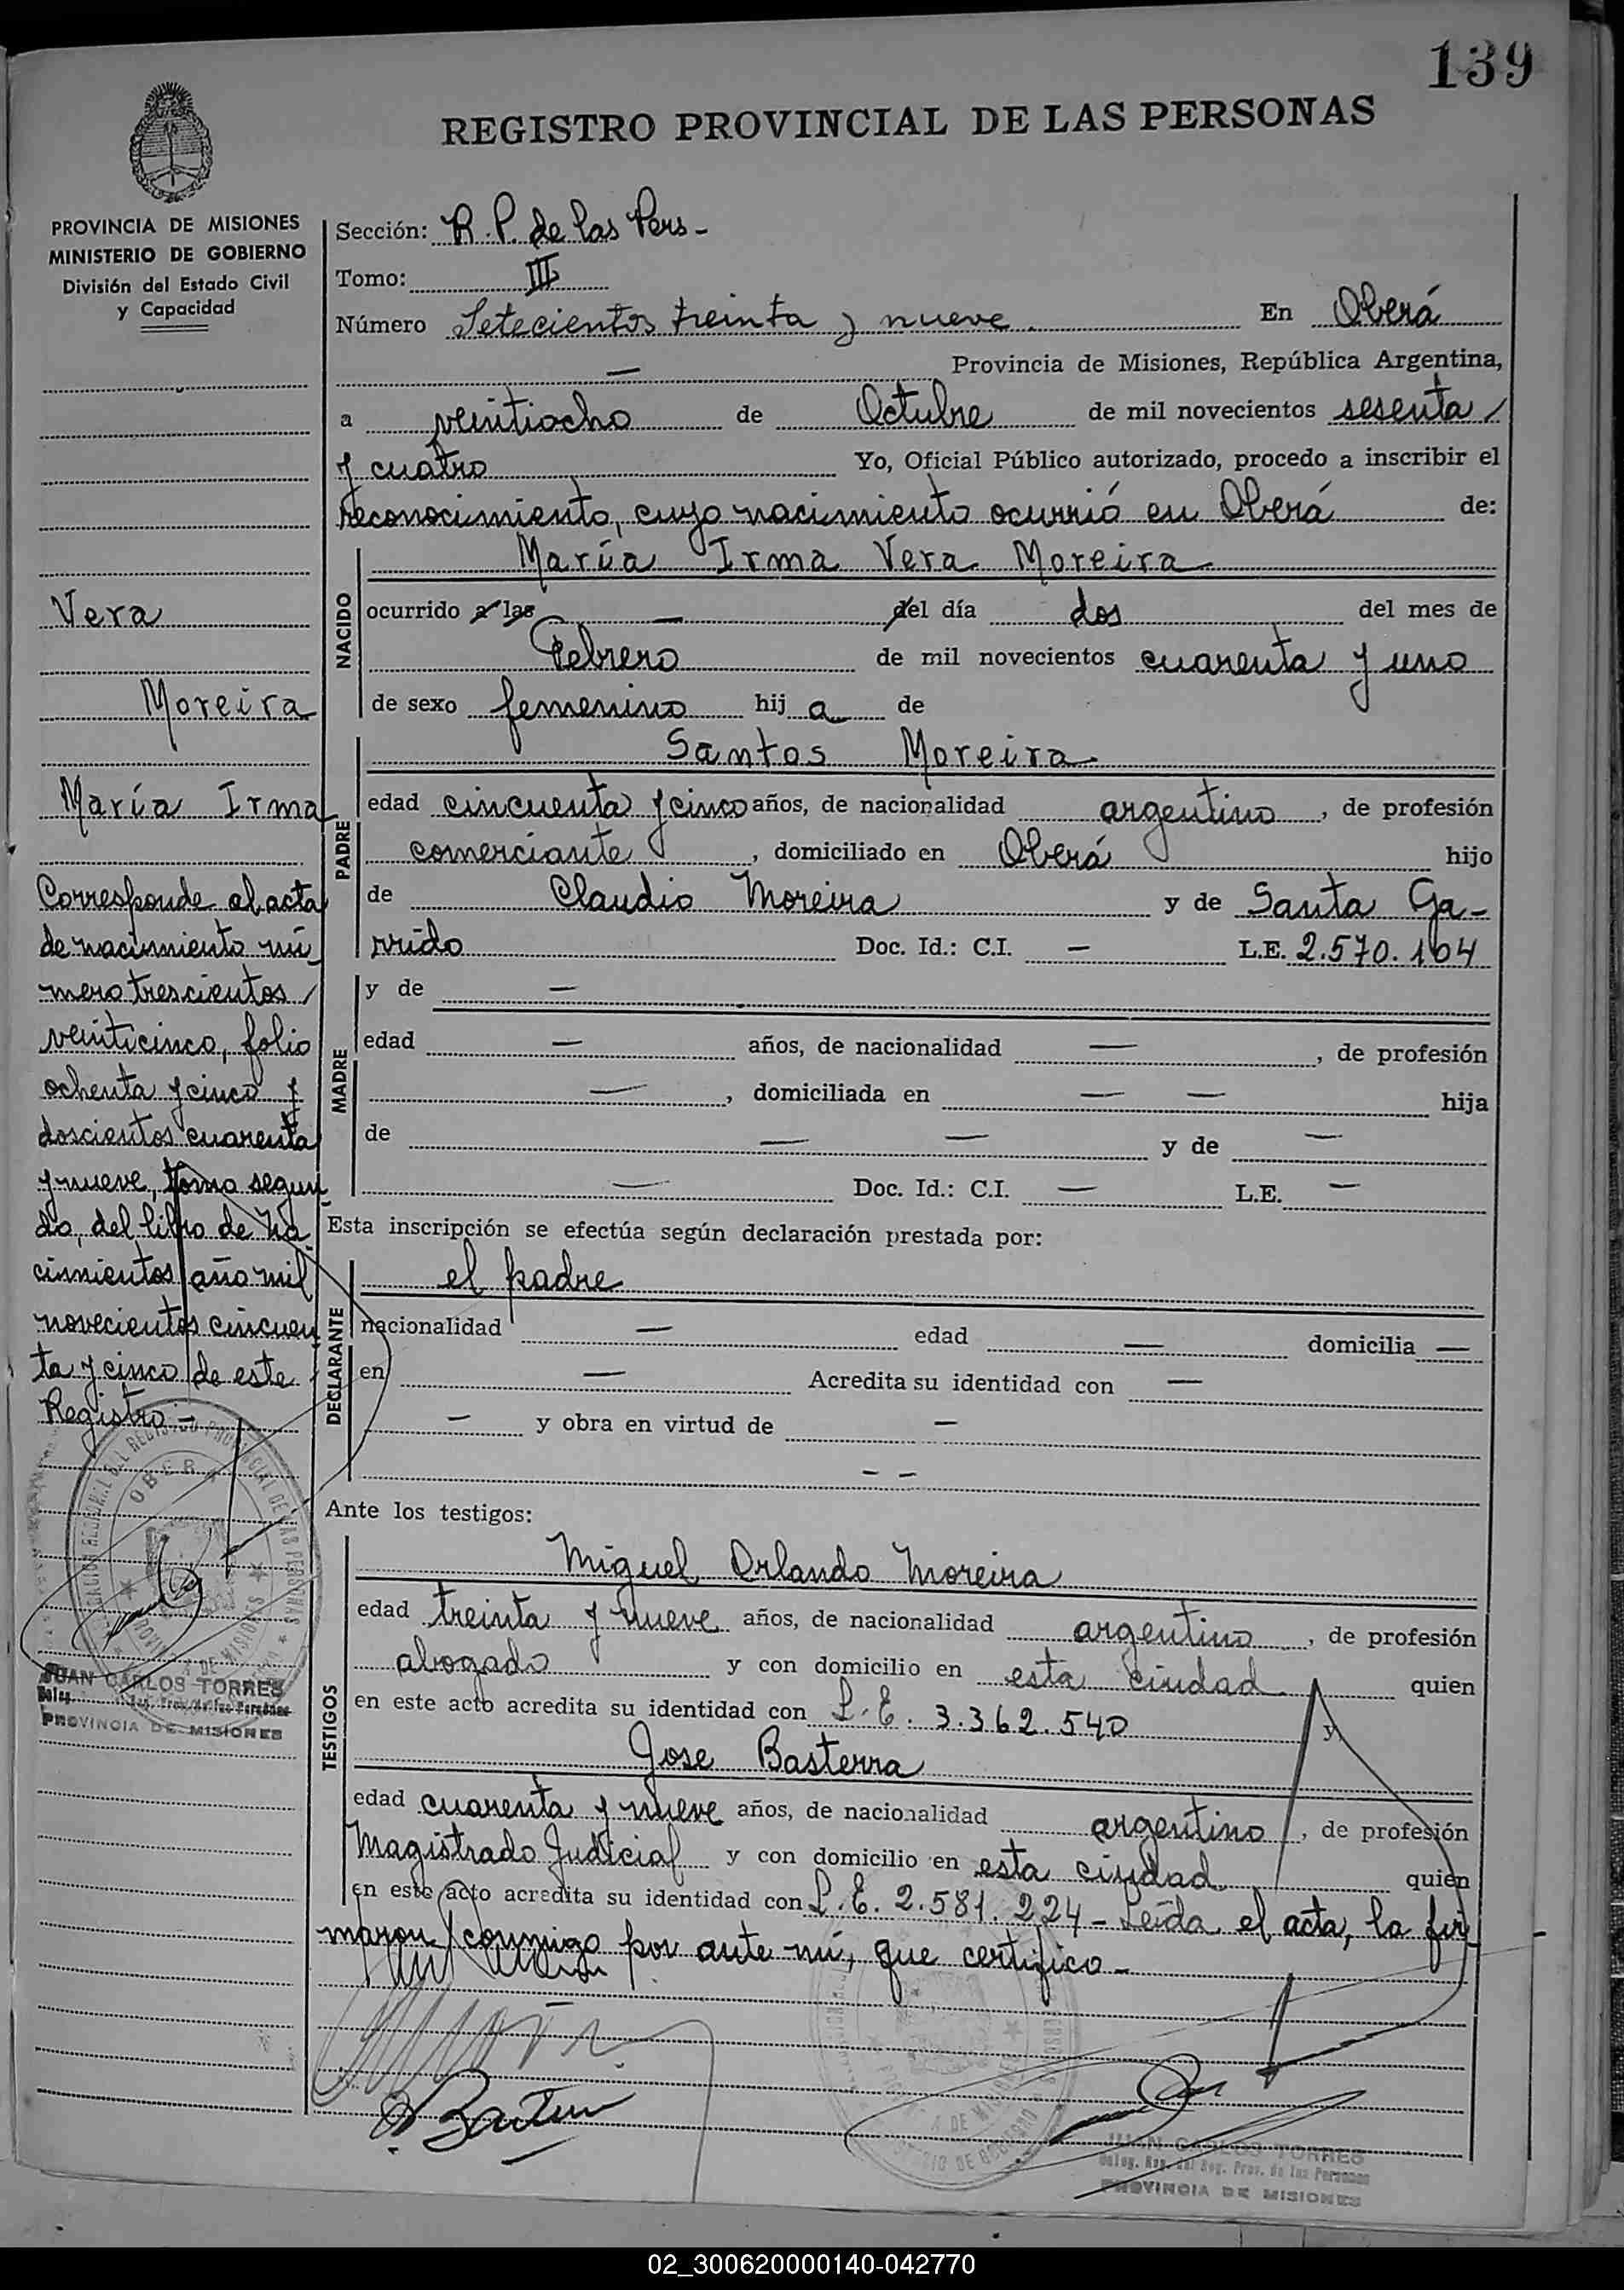 139
REGISTRO PROVINCIAL DE LAS PERSONAS
PROVINCIA DE MISIONES
MINISTERIO DE GOBIERNO
División del Estado Civil
y Capacidad
Vera
Moreira
María Irma
Corresponde al acta
de nacimiento nú
mero trescientos
veinticinco, folio
ochenta y cinco y
doscientos cuarenta
y nueve, tomo segun
do, del libro de Na
cimientos año mil
novecientos cincuen
ta y cinco de este
Registro.-
OBERA
JUAN CARLOS TORRES
Deleg. Reg. del Reg. Prov. de las Personas
PROVINCIA DE MISIONES
Sección: R. P. de las Pers-
Tomo: III
Número Setecientos treinta y nueve. En Oberá
— Provincia de Misiones, República Argentina,
a veintiocho de Octubre de mil novecientos sesenta
y cuatro Yo, Oficial Público autorizado, procedo a inscribir el
reconocimiento, cuyo nacimiento ocurrió en Oberá de:
NACIDO
María Irma Vera Moreira
ocurrido a las — del día dos del mes de
Febrero de mil novecientos cuarenta y uno
de sexo femenino hij a de
PADRE
Santos Moreira
edad cincuenta y cinco años, de nacionalidad argentino, de profesión
comerciante, domiciliado en Oberá hijo
de Claudio Moreira y de Santa Ga-
rrido Doc. Id.: C.I. — L.E. 2.570.104
MADRE
y de —
edad — años, de nacionalidad —, de profesión
—, domiciliada en — — hija
de — — y de —
— Doc. Id.: C.I. — L.E. —
Esta inscripción se efectúa según declaración prestada por:
DECLARANTE
el padre
nacionalidad — edad — domicilia —
en — Acredita su identidad con —
— y obra en virtud de —
— —
Ante los testigos:
TESTIGOS
Miguel Orlando Moreira
edad treinta y nueve años, de nacionalidad argentino, de profesión
abogado y con domicilio en esta ciudad quien
en este acto acredita su identidad con L.E. 3.362.540 y
Jose Basterra
edad cuarenta y nueve años, de nacionalidad argentino, de profesión
Magistrado Judicial y con domicilio en esta ciudad quien
en este acto acredita su identidad con L.E. 2.581.224- Leída el acta, la fir
maron conmigo por ante mí, que certifico-
JUAN CARLOS TORRES
Deleg. Reg. del Reg. Prov. de las Personas
PROVINCIA DE MISIONES
02_300620000140-042770